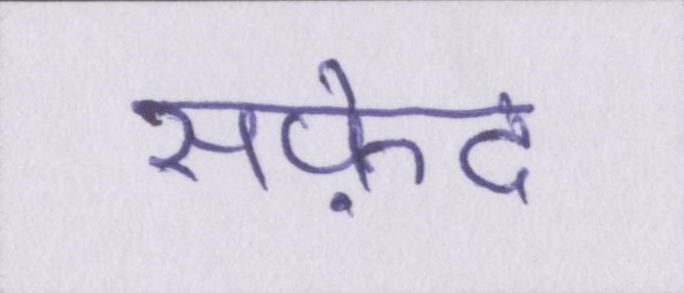 सफ़ेद